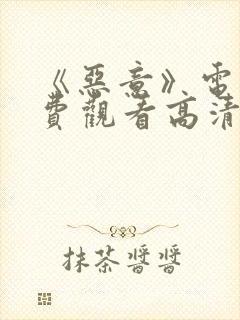 《惡意》電
費觀看高清
抹茶醬醬